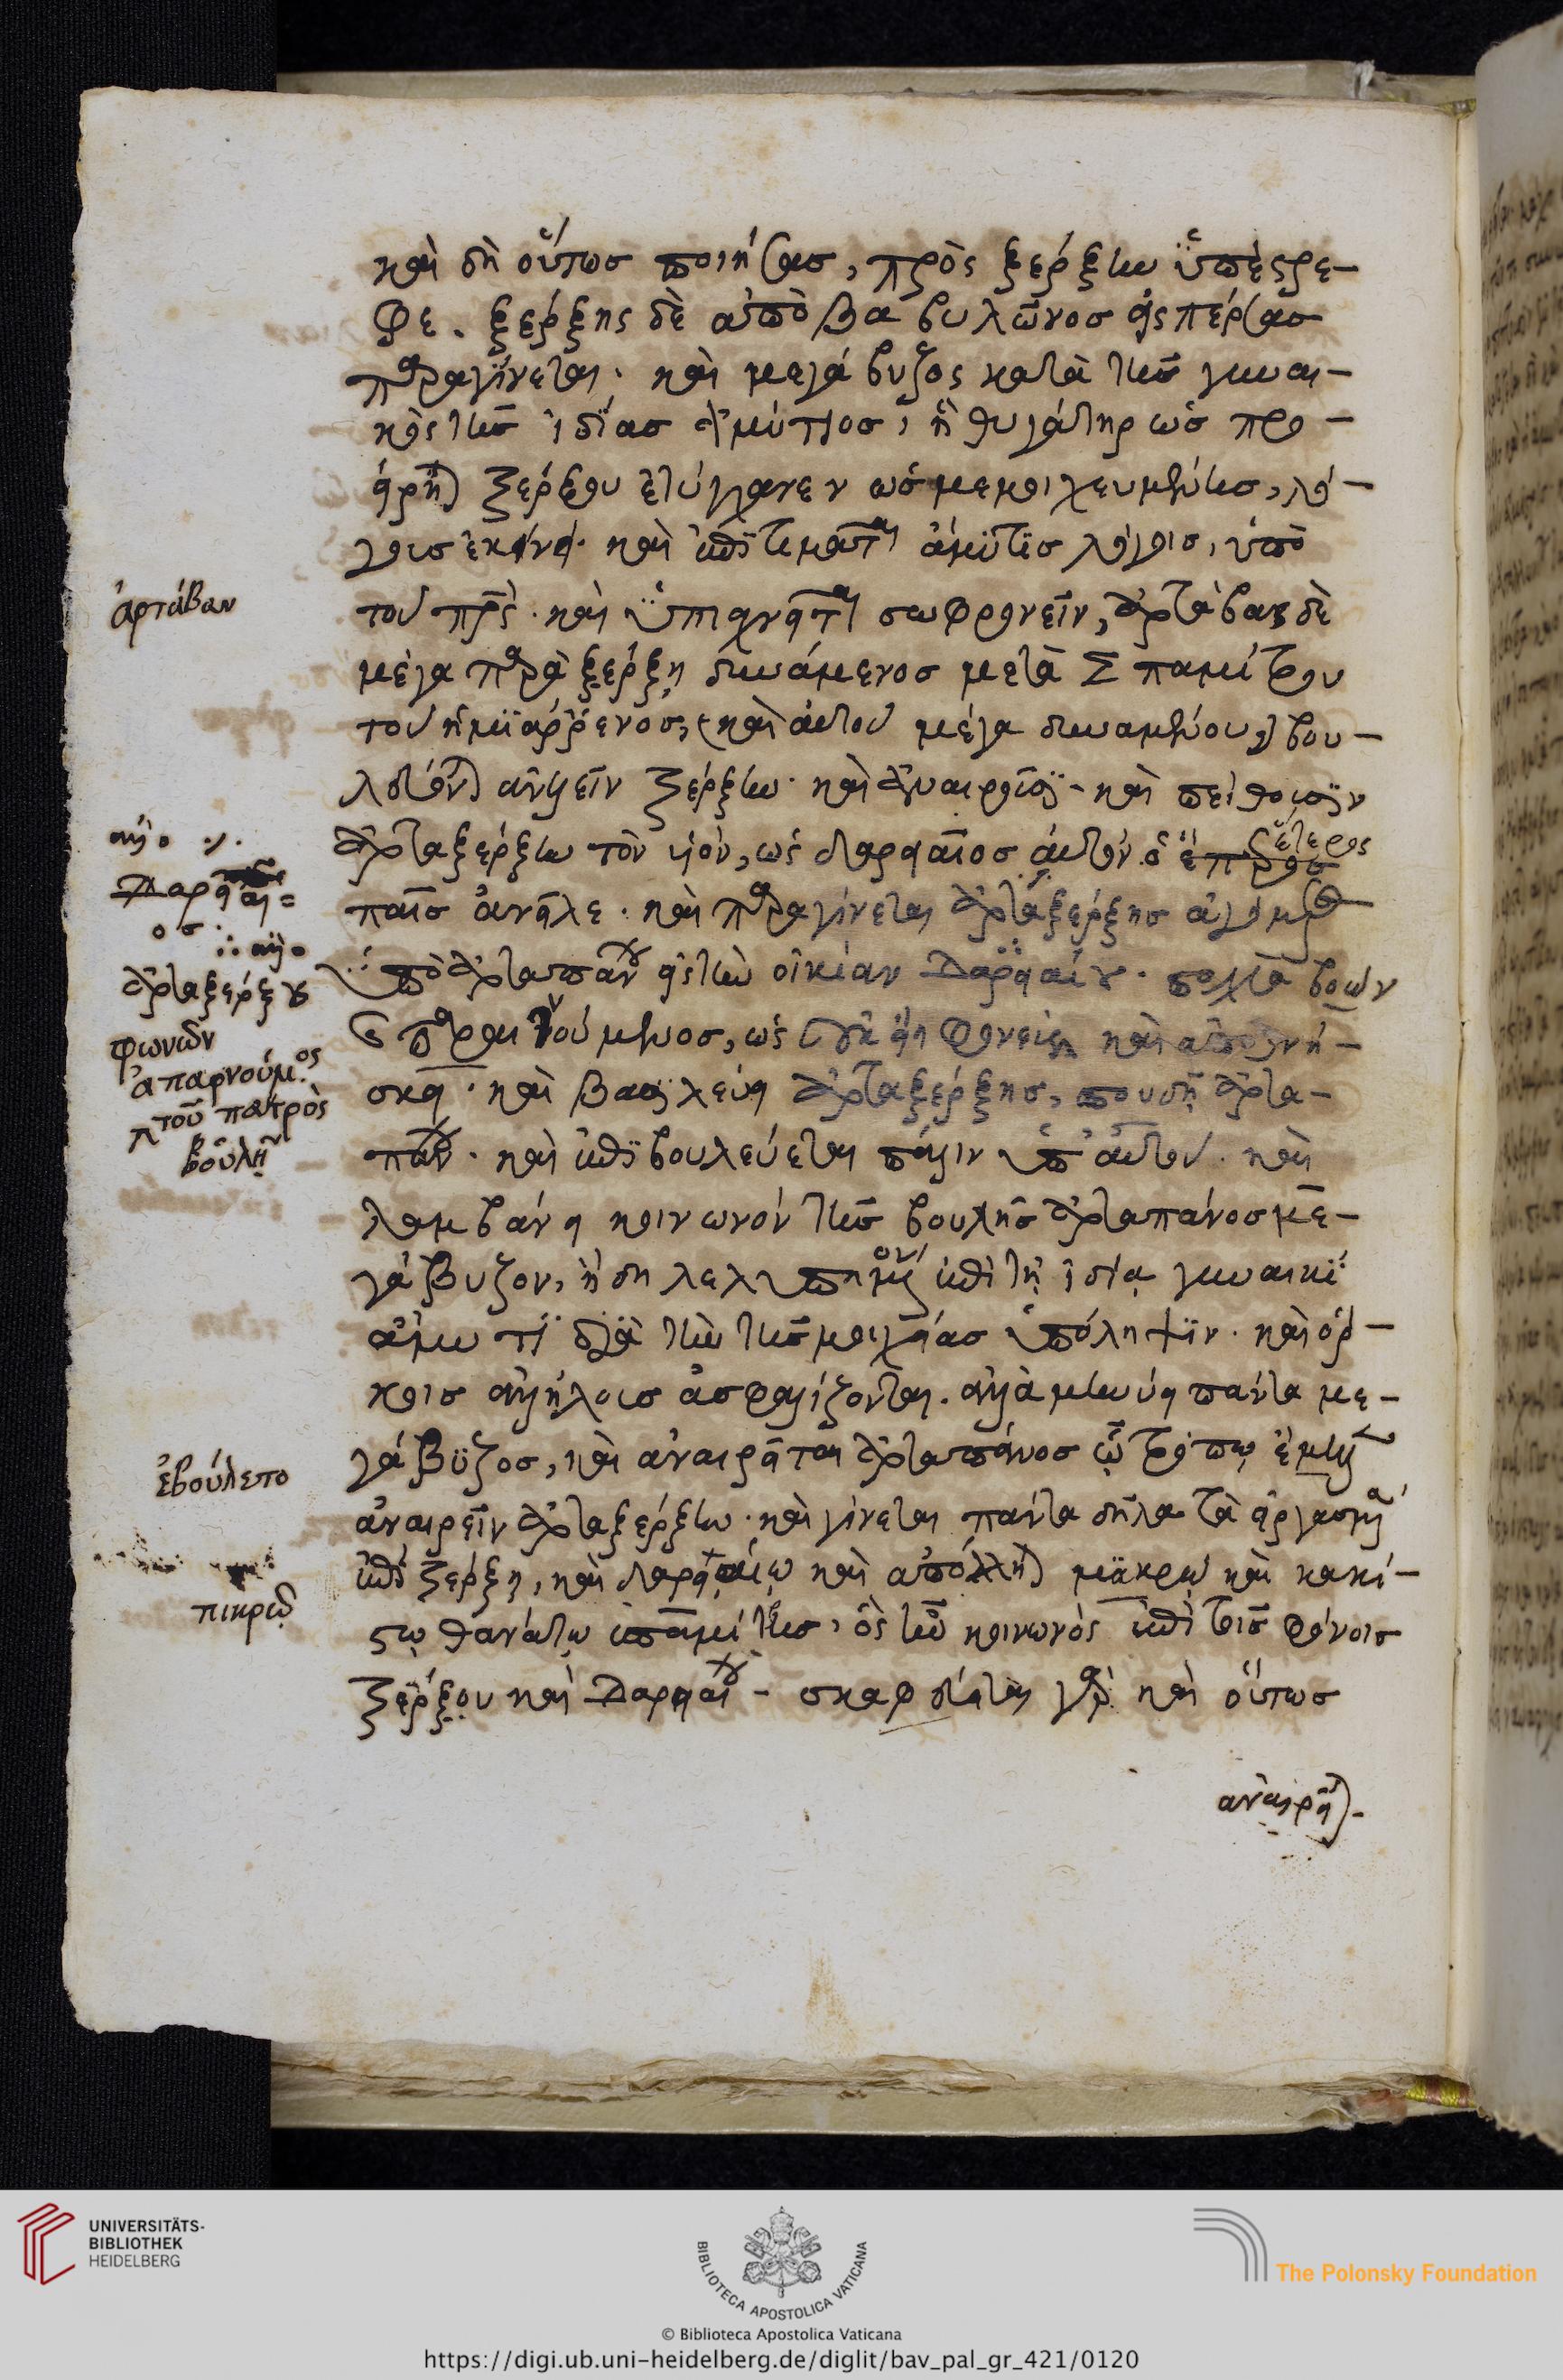 καὶ δὴ οὕτωσ ποιήσασ, πρὸς ξέρξην ὑπέστρε-
φε. ξέρξης δὲ ἀπὸ βαβυλῶνοσ εἰς πέρσασ
παραγίνεται. καὶ μεγάβυζος κατὰ τῆσ γυναι-
κὸς τῆσ ἰδίασ ἀμύτιοσ, ἡ θυγάτηρ ὡσ προ-
είρηται ξέρξου ἐτύγχανεν ὡσ μεμοιχευμένησ, λό-
γουσ ἐκίνει. καὶ ἐπιτιμᾶται ἀμύτισ λόγοισ, ὑπὸ
τοῦ πρς. καὶ ὑπισχνεῖται σωφρονεῖν, ἀρτάβαν δὲ
μέγα παρὰ ξέρξῃ δυνάμενοσ μετὰ Σπαμίτρου
τοῦ ἡμιάρρενοσ, καὶ αὐτοῦ μέγα δυναμένου, βου-
λεύονται ἀνελεῖν ξέρξην. καὶ ἀναιροῦσι. καὶ πείθουσιν
ἀρταξέρξην τὸν υἱόν, ὡς δαρειαῖοσ αὐτὸν ὁ ἕτερος
παῖσ ἀνεῖλε. καὶ παραγίνεται ἀρταξέρξησ ἀγόμενος
ὑπὸ ἀρταπάνου εἰς τὴν οἰκίαν Δαρειαίου. πολλὰ βοῶν
καὶ ἀπαρνούμενοσ, ὡς οὐκ εἴη φονεὺς καὶ ἀποθνή-
σκει. καὶ βασιλεύει ἀρταξέρξησ, σπουδῇ ἀρτα-
πάνου. καὶ ἐπιβουλεύεται πάλιν ὑπ' αὐτοῦ. καὶ
λαμβάνει κοινωνὸν τῆσ βουλῆσ ἀρταπάνοσ με-
γάβυζον, ἤδη λελυπημένον ἐπὶ τῇ ἰδίᾳ γυναικὶ
ἀμύτι διὰ τὴν τῆσ μοιχείασ ὑπόληψιν. καὶ ὅρ-
κοισ ἀλλήλουσ ἀσφαλίζονται. ἀλλὰ μηνύει πάντα με-
γάβυζοσ, καὶ ἀναιρεῖται ἀρταπάνοσ ᾧ τρόπῳ ἔμελλεν
ἀναιρεῖν ἀρταξέρξην. καὶ γίνεται πάντα δῆλα τὰ εἰργασμένα
ἐπὶ ξέρξῃ, καὶ δαρειαίῳ καὶ ἀπόλλυται μακρῷ καὶ κακί-
στῳ θανάτῳ ἀσπαμίτρησ, ὃς ἦν κοινωνὸς ἐπὶ τοῖσ φόνοισ
ξέρξου καὶ Δαρειαίου - σκαφεύεται γὰρ καὶ οὕτωσ
ἀναιρεῖται.
ἀρτάβαν
ἀλλο
Δαρειαῖ=
οσ.
ἀλλο
ἀρταξέρξου
φωνῶν
ἀπαρνούμος
τοῦ πατρὸς
βουλῇ
ἐβούλετο
πικρῷ
UNIVERSITÄTS-
BIBLIOTHEK
HEIDELBERG
BIBLIOTECA APOSTOLICA VATICANA
The Polonsky Foundation
© Biblioteca Apostolica Vaticana
https://digi.ub.uni-heidelberg.de/diglit/bav_pal_gr_421/0120